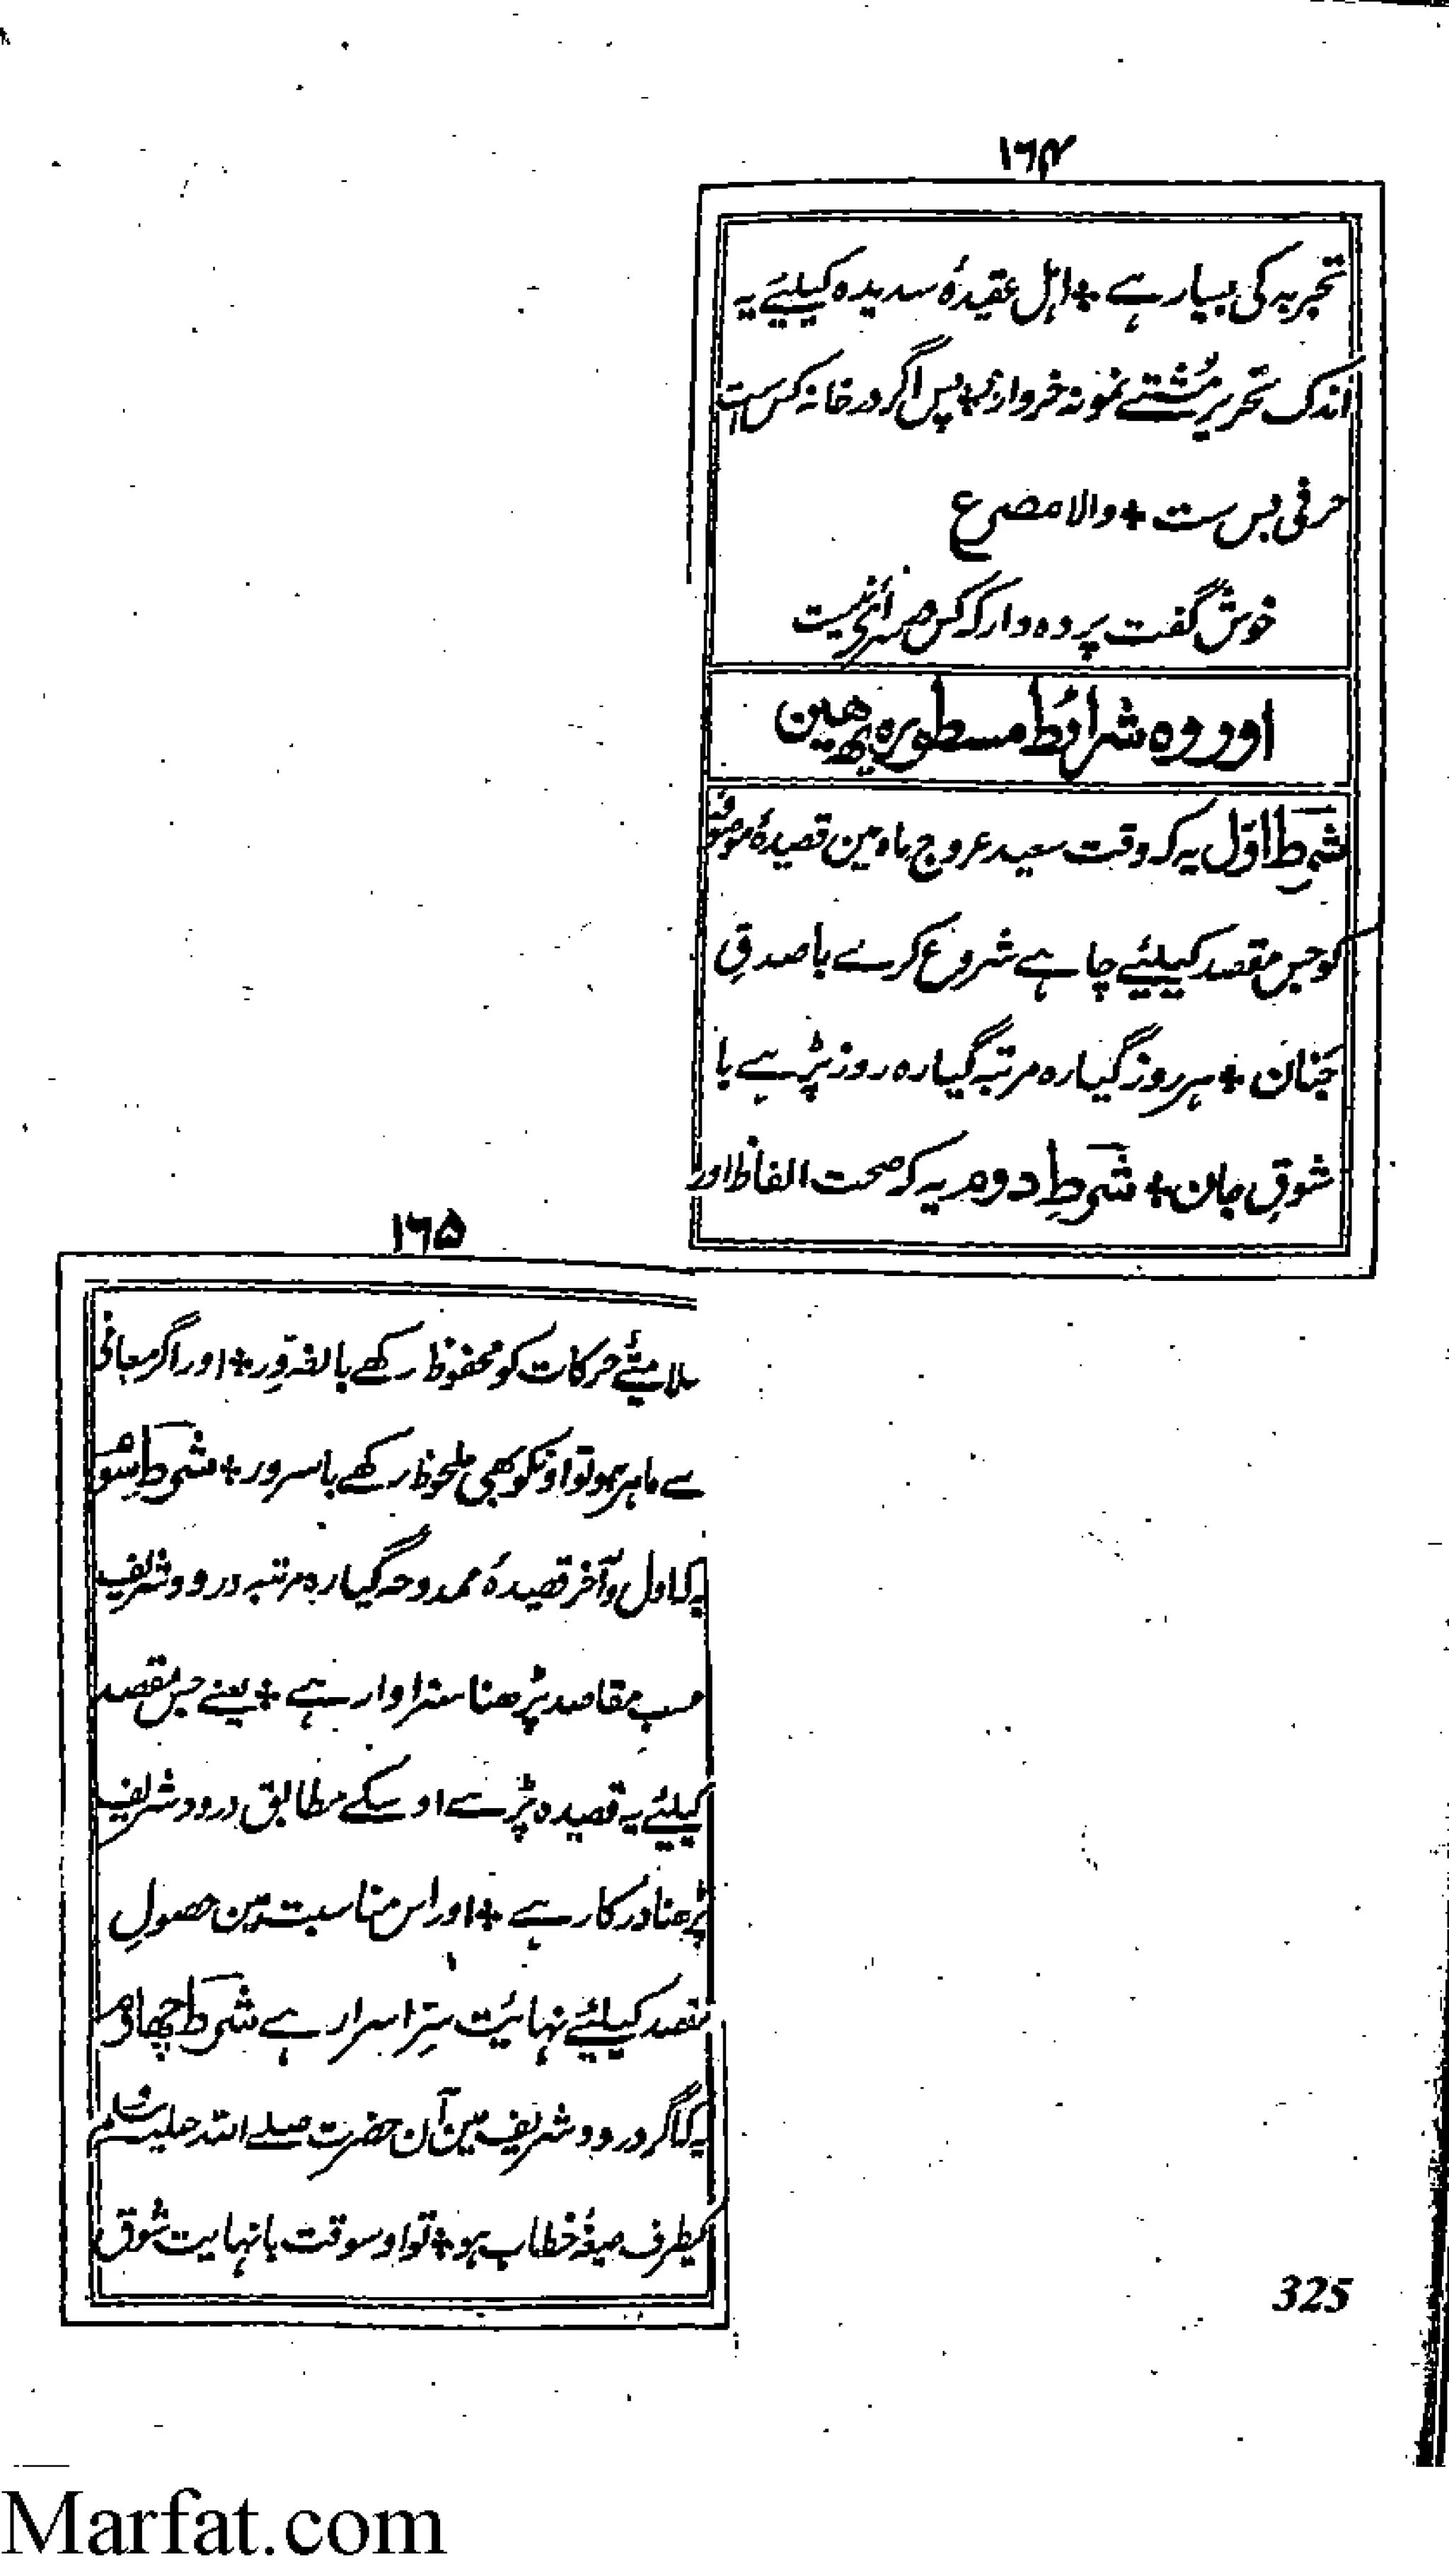 ۱۶۴
تجربہ کی بسیار ہے + اہل عقیدۂ سدیدہ کیلیئے یہ
اندک تحریر مُشتے نمونہ خرواری + پس اگر در خانہ کس است
حرفی بس ست + والا مصرع
خوش گفت پردہ دار کہ کس در سرائے نیست
اور وہ شرائط مسطورہ یھ ھین
شرط اوّل یہ کہ وقت سعید عروج ماہ مین قصیدۂ موصوفہ
کو جس مقصد کیلیئے چاہے شروع کرے با صدقِ
جَنان + ہر روز گیارہ مرتبہ گیارہ روز پڑہے با
شوقِ جان + شرطِ دوم یہ کہ صحت الفاظ اور
۱۶۵
سلامتیٔ حرکات کو محفوظ رکھے بالضرور + اور اگر معانی
سے ماہر ہو تو اونکو بھی ملحوظ رکھے با سرور + شرطِ سوم
یہ کہ اول و آخر قصیدۂ ممدوحہ گیارہ مرتبہ درود شریف
حسبِ مقاصد پڑھنا سزاوار ہے + یعنے جس مقصد
کیلیئے یہ قصیدہ پڑہے اوسکے مطابق درود شریف
پڑھنا درکار ہے + اور اس مناسبت مین حصولِ
مقصد کیلیئے نہایت سِرّ اسرار ہے شرط چھارم
یہ کہ اگر درود شریف مین آن حضرت صلے اللہ علیہ وسلم
کیطرف صیغۂ خطاب ہو + تو اوسوقت بانہایت شوق
325
Marfat.com